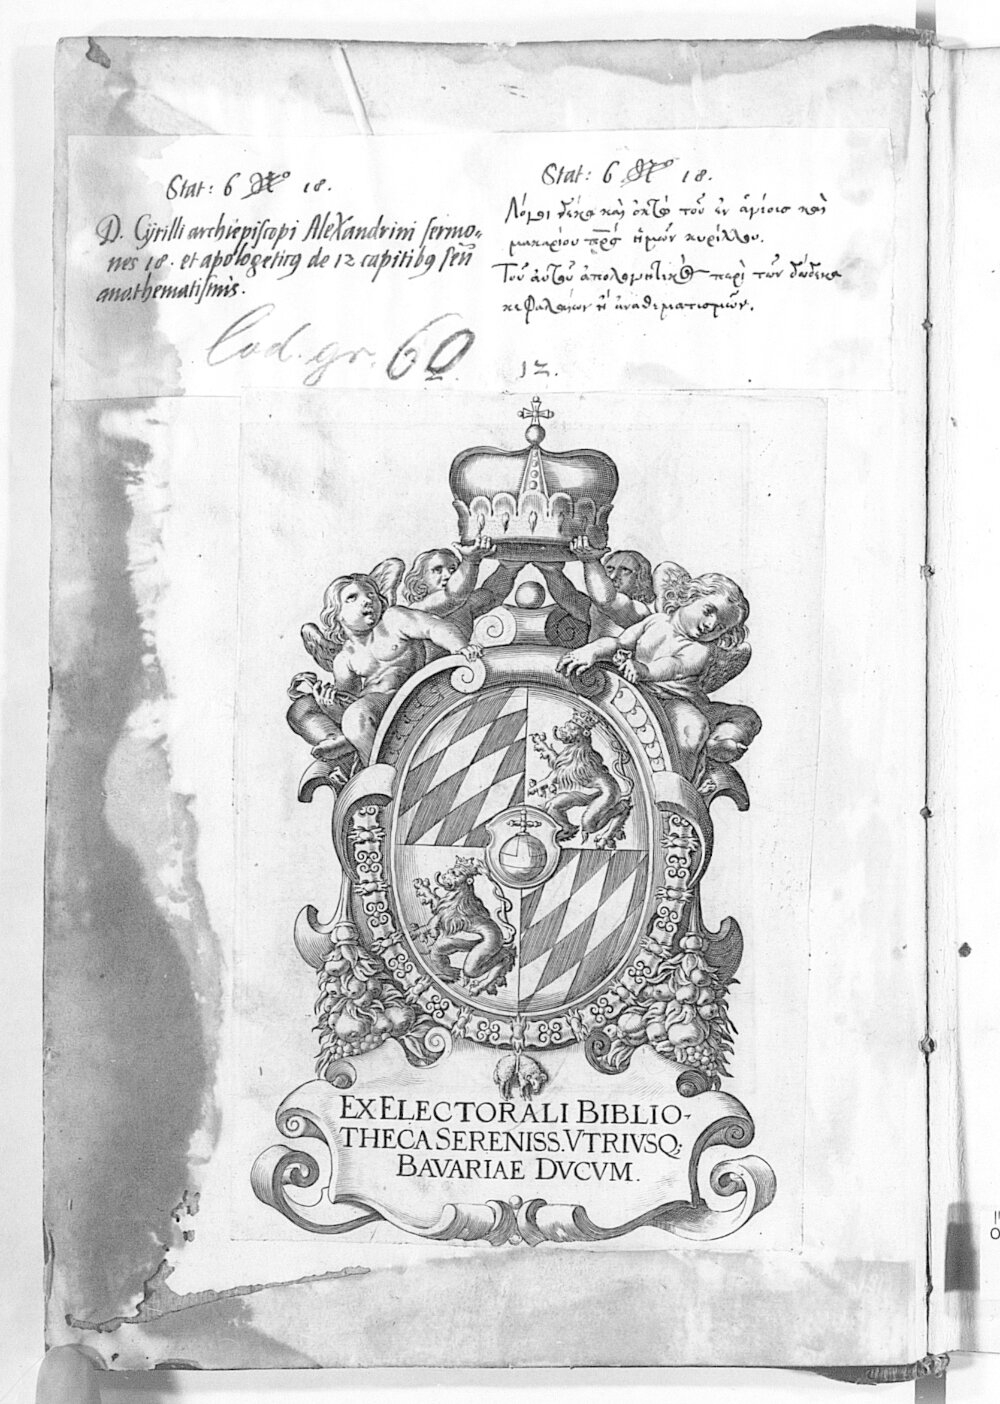 Stat: 6 No 18.
D. Cÿrilli archiepiscopi Alexandrini sermo-
nes 18. et apologeticq de 12 capitibq seu
anathematismis.
Cod. gr. 60.
Stat: 6 No 18.
Λόγοι δέκα καὶ ὀκτὼ τοῦ ἐν ἁγίοισ καὶ
μακαρίου πρς ἡμῶν κυρίλλου.
Τοῦ αὐτοῦ ἀπολογητικὸς περὶ τῶν δώδεκα
κεφαλαίων ἢ ἀναθεματισμῶν.
12.
EX ELECTORALI BIBLIO-
THECA SERENISS. VTRIVSQ;
BAVARIAE DVCVM.